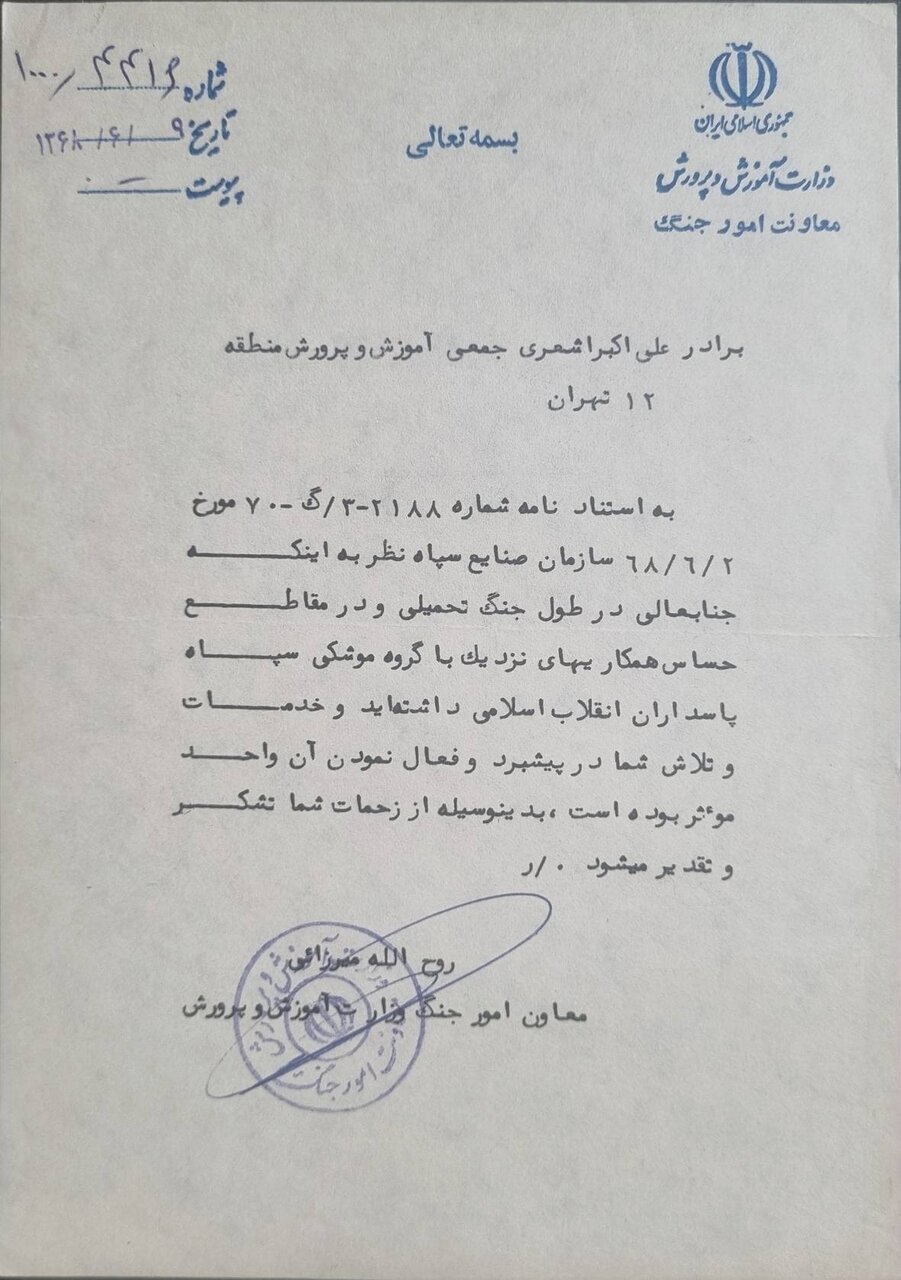 جمهوری اسلامی ایران
وزارت آموزش و پرورش
معاونت امور جنگ
بسمه تعالی
شماره ۱۰۰۰/۴۴۱۶
تاریخ ۱۳۶۸/۶/۹
پیوست ــ
برادر علی اکبر اشعری جمعی آموزش و پرورش منطقه
۱۲ تهران
به استناد نامه شماره ۲۱۸۸-۳/گ-۷۰ مورخ
۶۸/۶/۲ سازمان صنایع سپاه نظر به اینکه
جنابعالی در طول جنگ تحمیلی و در مقاطع
حساس همکاریهای نزدیك با گروه موشکی سپاه
پاسداران انقلاب اسلامی داشته‌اید و خدمات
و تلاش شما در پیشبرد و فعال نمودن آن واحد
موٴثر بوده است ،بدینوسیله از زحمات شما تشکر
و تقدیر میشود ۰/ر
روح الله میرزائی
معاون امور جنگ وزارت آموزش و پرورش
معاونت امور جنگ